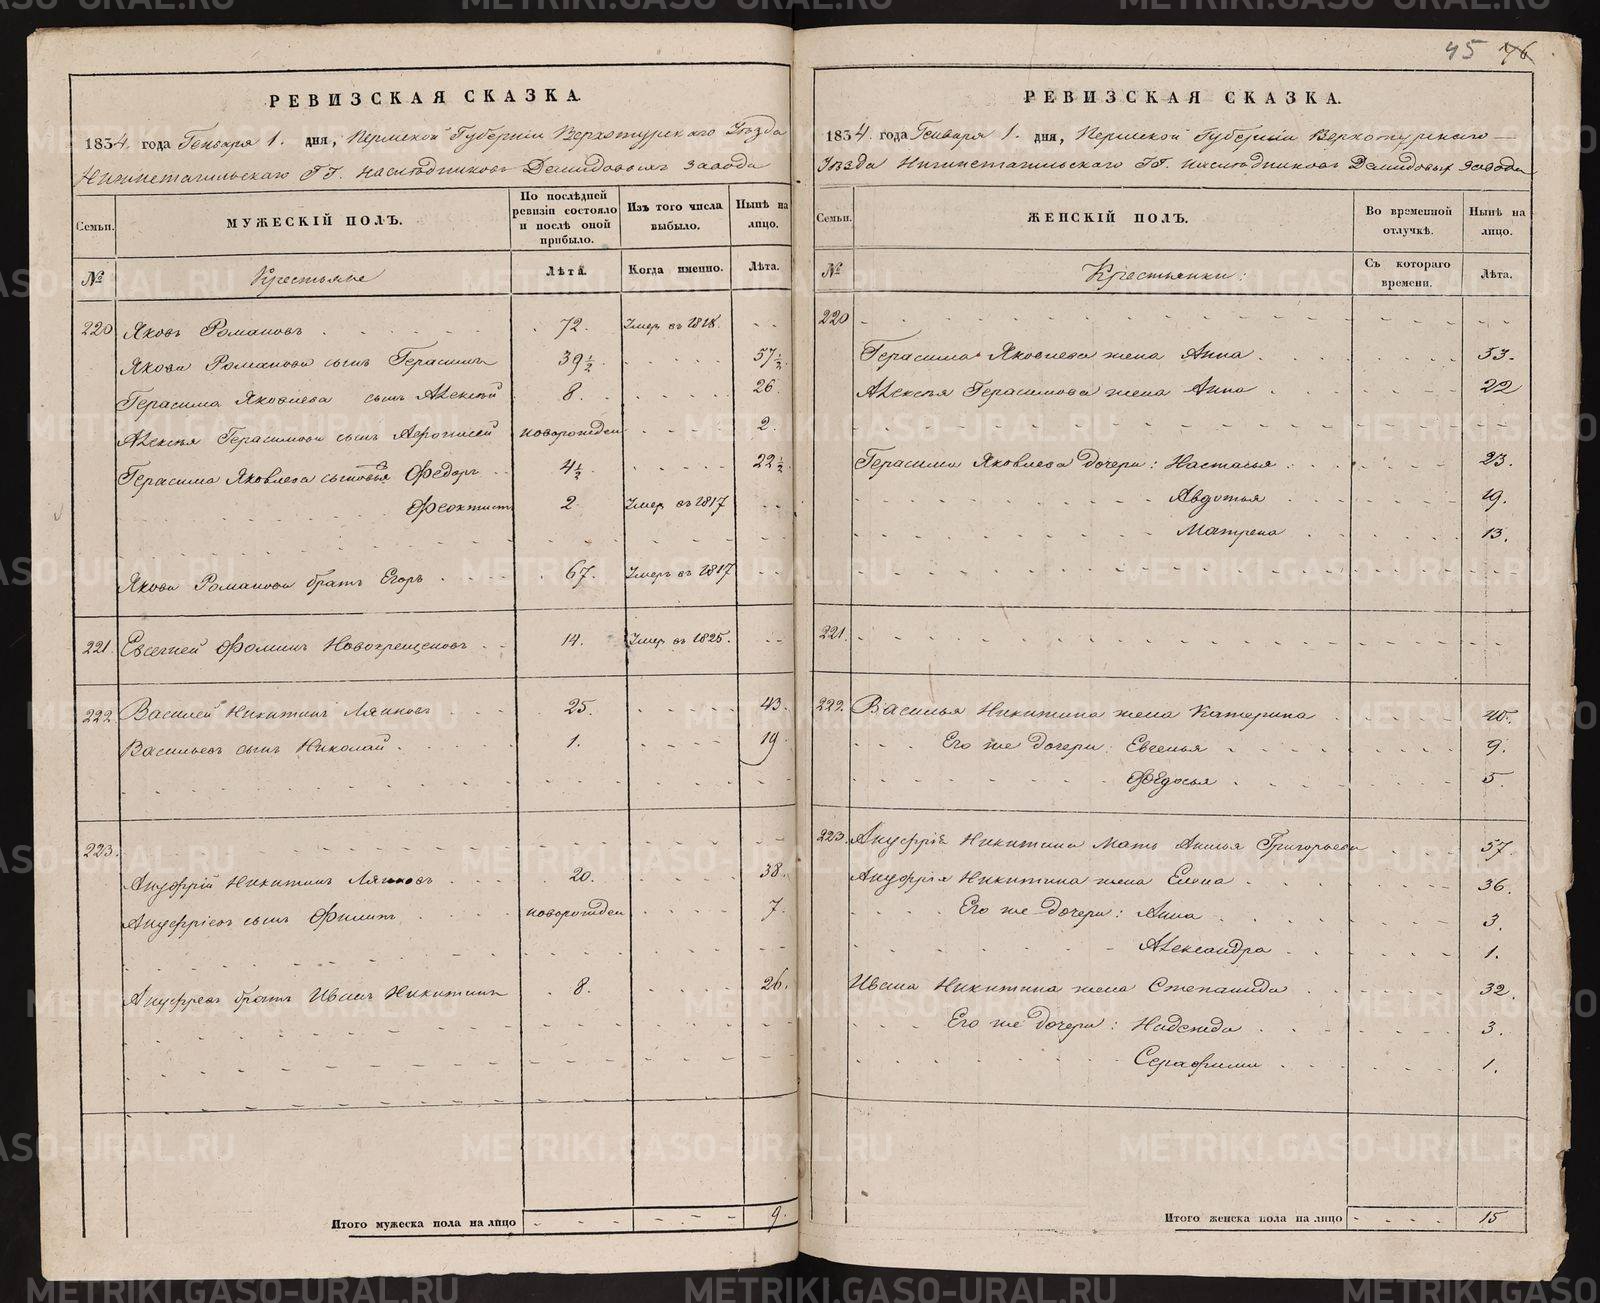 45 76
РЕВИЗСКАЯ СКАЗКА.
1834. года Генваря 1. дня, Пермской Губерніи Верхотурскаго Уѣзда
Нижнетагильскаго ГГ. наслѣдниковъ Демидовыхъ завода
Семьи.
МУЖЕСКІЙ ПОЛЪ.
По послѣдней ревизіи состояло и послѣ оной прибыло.
Изъ того числа выбыло.
Нынѣ на лицо.
№
Крестьяне
Лѣта.
Когда именно.
Лѣта.
220 Яковъ Романовъ 72. Умер въ 1818.
Якова Романова сынъ Герасимъ 39 1/2 57 1/2
Герасима Яковлева сынъ Алексѣй 8. 26
Алексѣя Герасимова сынъ новорожден 2.
Герасима Яковлева сыновья Федоръ 4 1/2 22 1/2
Феоктистъ 2. Умер въ 1817
Якова Романова братъ Егоръ 67. Умеръ въ 1817
221. Евсегней Фоминъ Новокрещеновъ 14. Умер въ 1825.
222. Василей Никитинъ Ляпновъ 25. 43.
Васильевъ сынъ Николай 1. 19
223.
Ануфрій Никитинъ 20. 38.
Ануфріевъ сынъ Филипъ новорожден 7.
Ануфрьевъ братъ Иванъ Никитинъ 8. 26.
Итого мужеска пола на лицо 9.
РЕВИЗСКАЯ СКАЗКА.
1834. года Генваря 1. дня, Пермской Губерніи Верхотурскаго
Уѣзда Нижнетагильскаго ГГ. наслѣдниковъ Демидовых завода
Семьи.
ЖЕНСКІЙ ПОЛЪ.
Во временной отлучкѣ.
Нынѣ на лицо.
№
Крестьянки:
Съ котораго времени.
Лѣта.
220
Герасима Яковлева жена Анна 53.
Алексѣя Герасимова жена Анна 22
Герасима Яковлева дочери: Настасья 23.
Авдотья 19.
Матрена 13.
221.
222. Василья Никитина жена Катерина 40.
Его же дочери: Евгенья 9.
Федосья 5.
223. Ануфрія Никитина мать Григорьева 57.
Ануфрія Никитина жена Елена 36.
Его же дочери: Анна 3.
Александра 1.
Ивана Никитина жена Степанида 32.
Его же дочери: Надежда 3.
Серафима 1.
Итого женска пола на лицо 15
METRIKI.GASO-URAL.RU